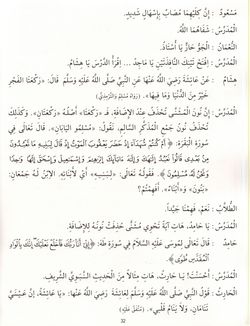 مَسْعُودٌ : إِنَّ كِلَيْهِمَا مُصَابٌ بِإِسْهَالٍ شَدِيدٍ.
المُدَرِّسُ : شَفَاهُمَا اللهُ.
النُّعْمَانُ : الجَوُّ حَارٌّ يَا أُسْتَاذُ.
المُدَرِّسُ : اِفْتَحْ تَيْنِكَ النَّافِذَتَيْنِ يَا مَاجِدُ ... اِقْرَأِ الدَّرْسَ يَا هِشَامُ.
هِشَامٌ : عَنْ عَائِشَةَ رَضِيَ اللهُ عَنْهَا عَنِ النَّبِيِّ صَلَّى اللهُ عَلَيْهِ وَسَلَّمَ قَالَ: «رَكْعَتَا الفَجْرِ
خَيْرٌ مِنَ الدُّنْيَا وَمَا فِيهَا».
المُدَرِّسُ : إِنَّ نُونَ المُثَنَّى تُحْذَفُ عِنْدَ الإِضَافَةِ، فَـ «رَكْعَتَا» أَصْلُهُ «رَكْعَتَانِ». وَكَذَلِكَ
تُحْذَفُ نُونُ جَمْعِ المُذَكَّرِ السَّالِمِ، نَقُولُ: «مُسْلِمُو اليَابَانِ». قَالَ تَعَالَى فِي
سُورَةِ البَقَرَةِ: ﴿أَمْ كُنْتُمْ شُهَدَاءَ إِذْ حَضَرَ يَعْقُوبَ المَوْتُ إِذْ قَالَ لِبَنِيهِ مَا تَعْبُدُونَ
مِنْ بَعْدِي قَالُوا نَعْبُدُ إِلَهَكَ وَإِلَهَ آبَائِكَ إِبْرَاهِيمَ وَإِسْمَاعِيلَ وَإِسْحَاقَ إِلَهًا وَاحِدًا
وَنَحْنُ لَهُ مُسْلِمُونَ﴾. فَقَوْلُهُ تَعَالَى: «لِبَنِيهِ» أَيْ لِأَبْنَائِهِ. الِابْنُ لَهُ جَمْعَانِ:
«بَنُونَ»، وَ«أَبْنَاءٌ». أَفَهِمْتُمْ؟
الطُّلَّابُ : نَعَمْ، فَهِمْنَا جَيِّدًا.
المُدَرِّسُ : يَا حَامِدُ، هَاتِ آيَةً تَحْتَوِي مُثَنًّى حُذِفَتْ نُونُهُ لِلْإِضَافَةِ.
حَامِدٌ : قَالَ تَعَالَى لِمُوسَى عَلَيْهِ السَّلَامُ فِي سُورَةِ طه: ﴿إِنِّي أَنَا رَبُّكَ فَاخْلَعْ نَعْلَيْكَ إِنَّكَ بِالْوَادِ
المُقَدَّسِ طُوًى﴾.
المُدَرِّسُ : أَحْسَنْتَ! يَا حَارِثُ، هَاتِ مِثَالًا مِنَ الحَدِيثِ النَّبَوِيِّ الشَّرِيفِ.
الحَارِثُ : قَوْلُ النَّبِيِّ صَلَّى اللهُ عَلَيْهِ وَسَلَّمَ لِعَائِشَةَ رَضِيَ اللهُ عَنْهَا: «يَا عَائِشَةُ، إِنَّ عَيْنَيَّ
تَنَامَانِ، وَلَا يَنَامُ قَلْبِي».
32